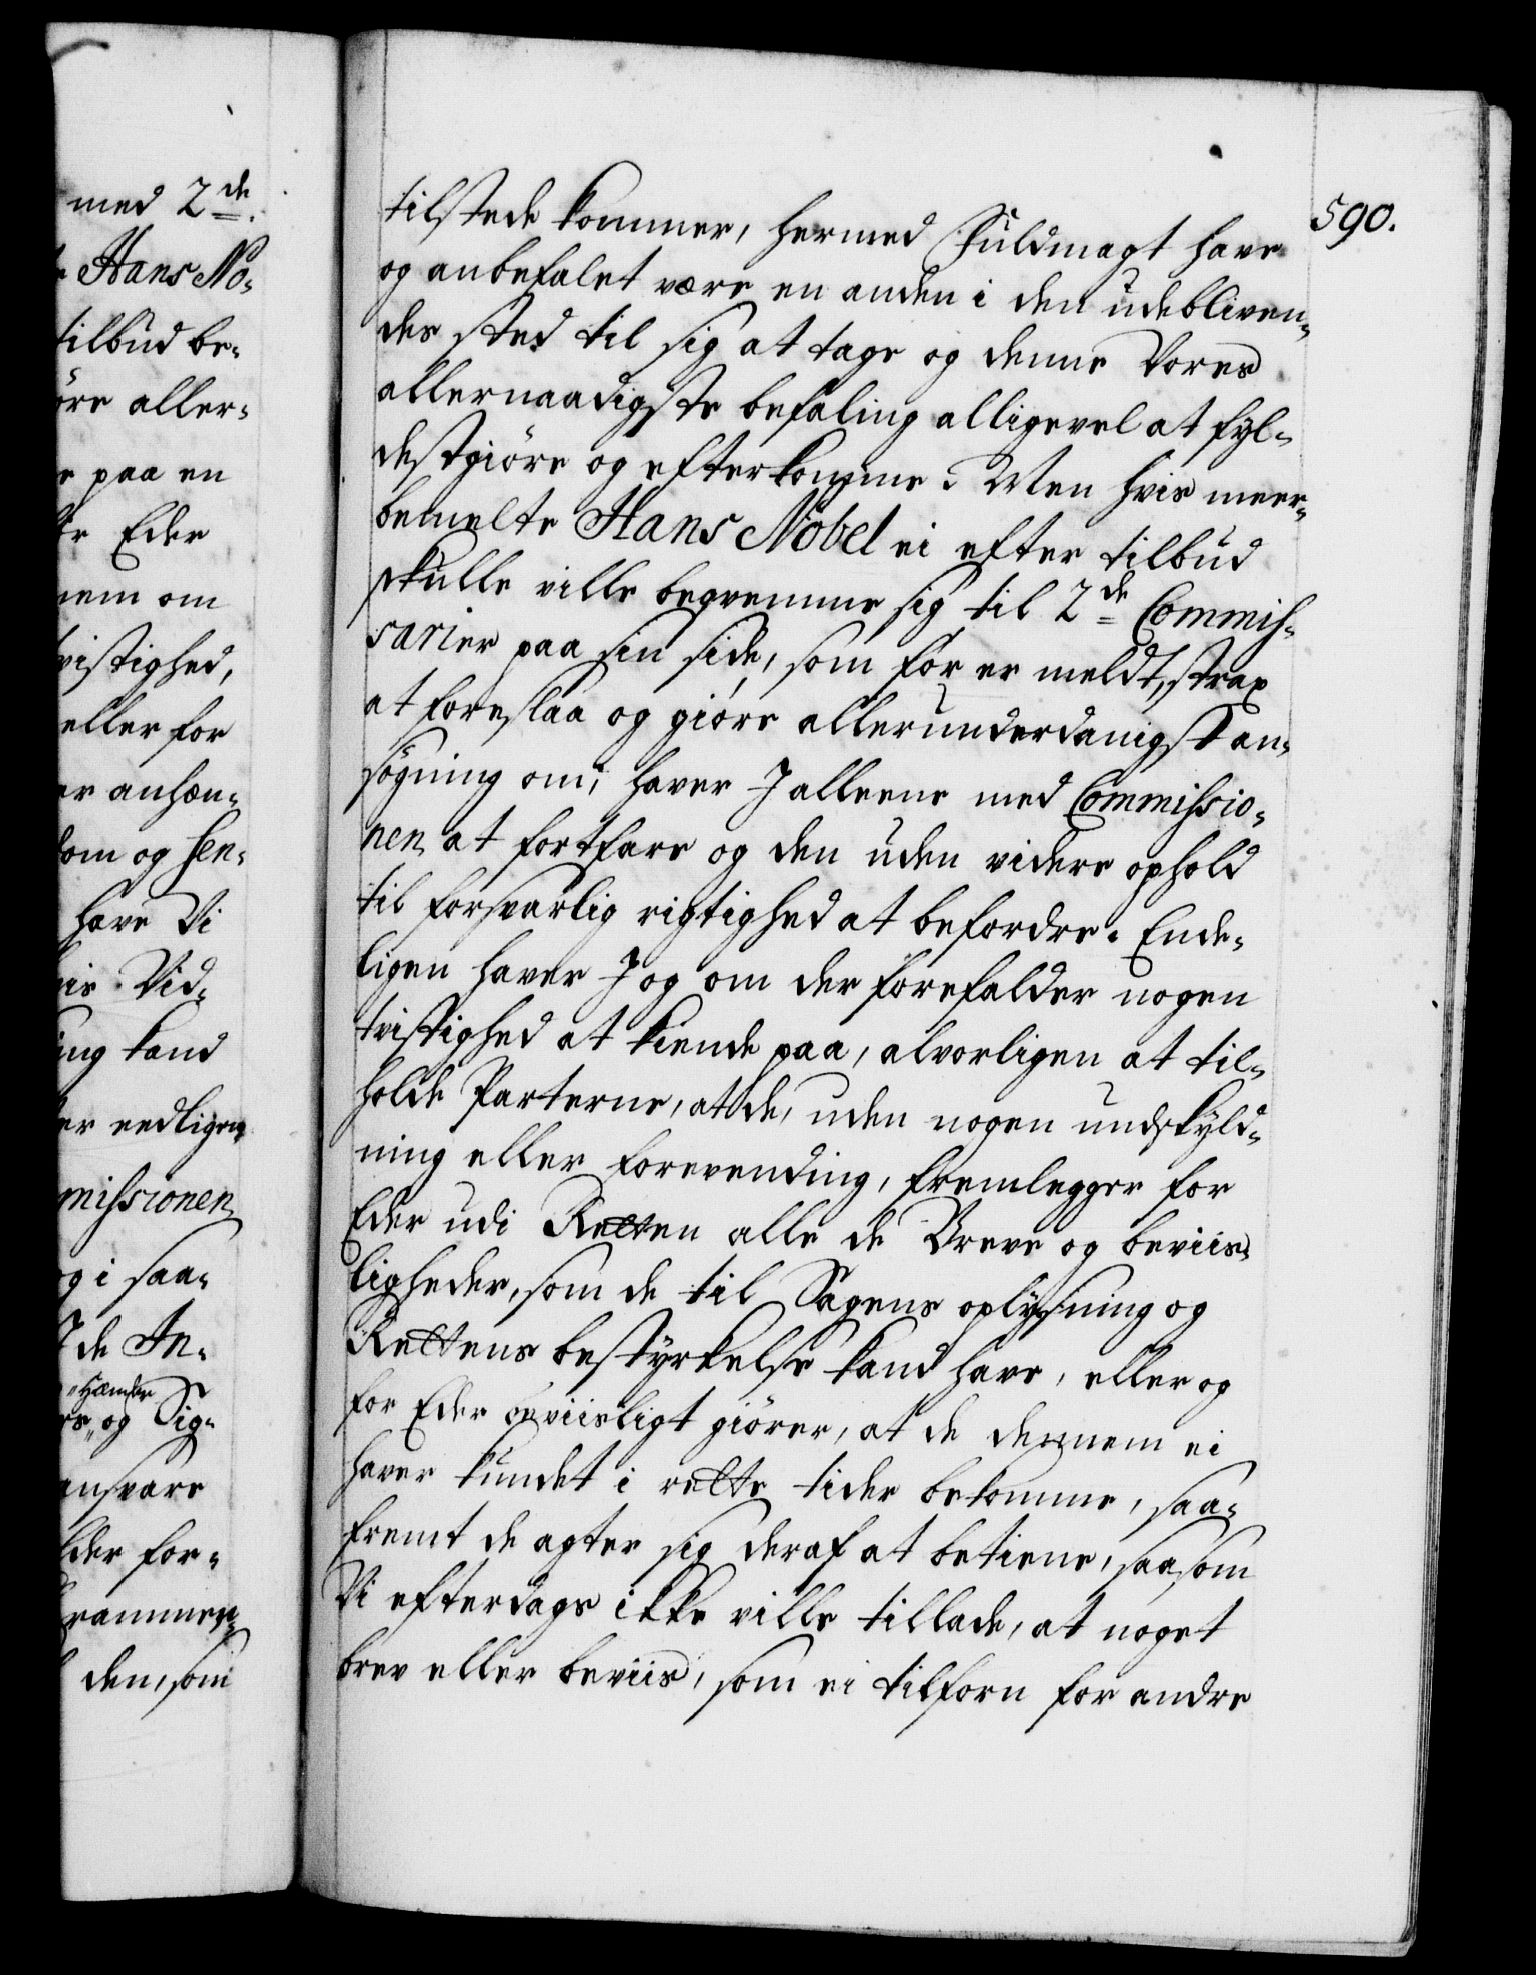 med 2de.
e Hans No-
tilbud be-
øre aller-
e paa en
te Eder
nem om
vistighed,
eller for
er anhæn-
dom og hen-
have Vi
nis Vid-
ing kand
er endligen
missionen
og i saa-
de In-
Hænder
rs, og Sig-
ansvare
lder for-
rammen
den, som
590.
tilstede kommer, hermed Fuldmagt have
og anbefalet være en anden i den udebliven-
des sted til sig at tage og denne Vores
allernaadigste befaling alligevel at fyl-
destgiøre og efterkomme. Men hvis meer-
bemelte Hans Nobel ei efter tilbud
skulle ville beqvemme sig til 2de Commis-
sarier paa sin side, som før er meldt, strax
at foreslaa og giøre allerunderdanigst an-
søgning om, haver I alleene med Commissio-
nen at fortfare og den uden videre ophold
til forsvarlig rigtighed at befordre. Ende-
ligen haver I og om der forefalder nogen
tvistighed at kiende paa, alvorligen at til-
holde Parterne, at de, uden nogen undskyld-
ning eller forevending, fremlegger for
Eder udi Retten alle de Breve og beviis-
ligheder, som de til Sagens oplysning og
Rettens bestyrkelse kand have, eller og
for Eder beviisligt giører, at de dennem ei
haver kundet i rette tider bekomme, saa-
fremt de agter sig deraf at betiene, saasom
Vi efterdags ikke ville tillade, at noget
brev eller beviis, som ei tilforn for andre